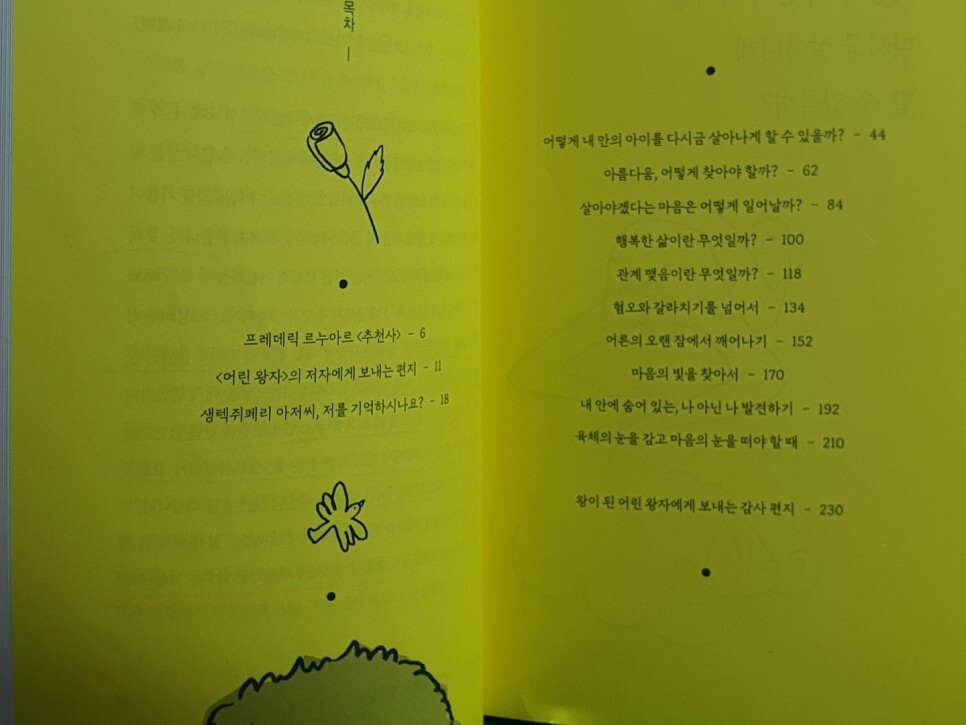 목차
프레데릭 르누아르 〈추천사〉 - 6
〈어린 왕자〉의 저자에게 보내는 편지 - 11
생텍쥐페리 아저씨, 저를 기억하시나요? - 18
어떻게 내 안의 아이를 다시금 살아나게 할 수 있을까? - 44
아름다움, 어떻게 찾아야 할까? - 62
살아야겠다는 마음은 어떻게 일어날까? - 84
행복한 삶이란 무엇일까? - 100
관계 맺음이란 무엇일까? - 118
혐오와 갈라치기를 넘어서 - 134
어른의 오랜 잠에서 깨어나기 - 152
마음의 빛을 찾아서 - 170
내 안에 숨어 있는, 나 아닌 나 발견하기 - 192
육체의 눈을 감고 마음의 눈을 떠야 할 때 - 210
왕이 된 어린 왕자에게 보내는 감사 편지 - 230